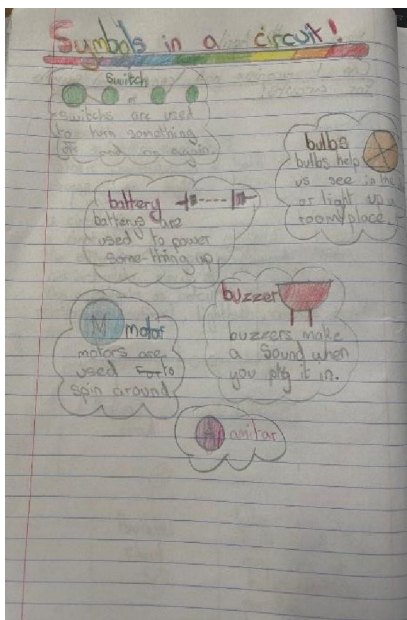 Symbols in a circuit!
Switch
switchs are used
to turn something
off and on again.
bulbs
bulbs help
us see in the
or light up a
room/place.
battery
batterys are
used to power
something up
buzzer
buzzers make
a sound when
you plg it in.
M motor
motors are
used for to
spin around
A amitar